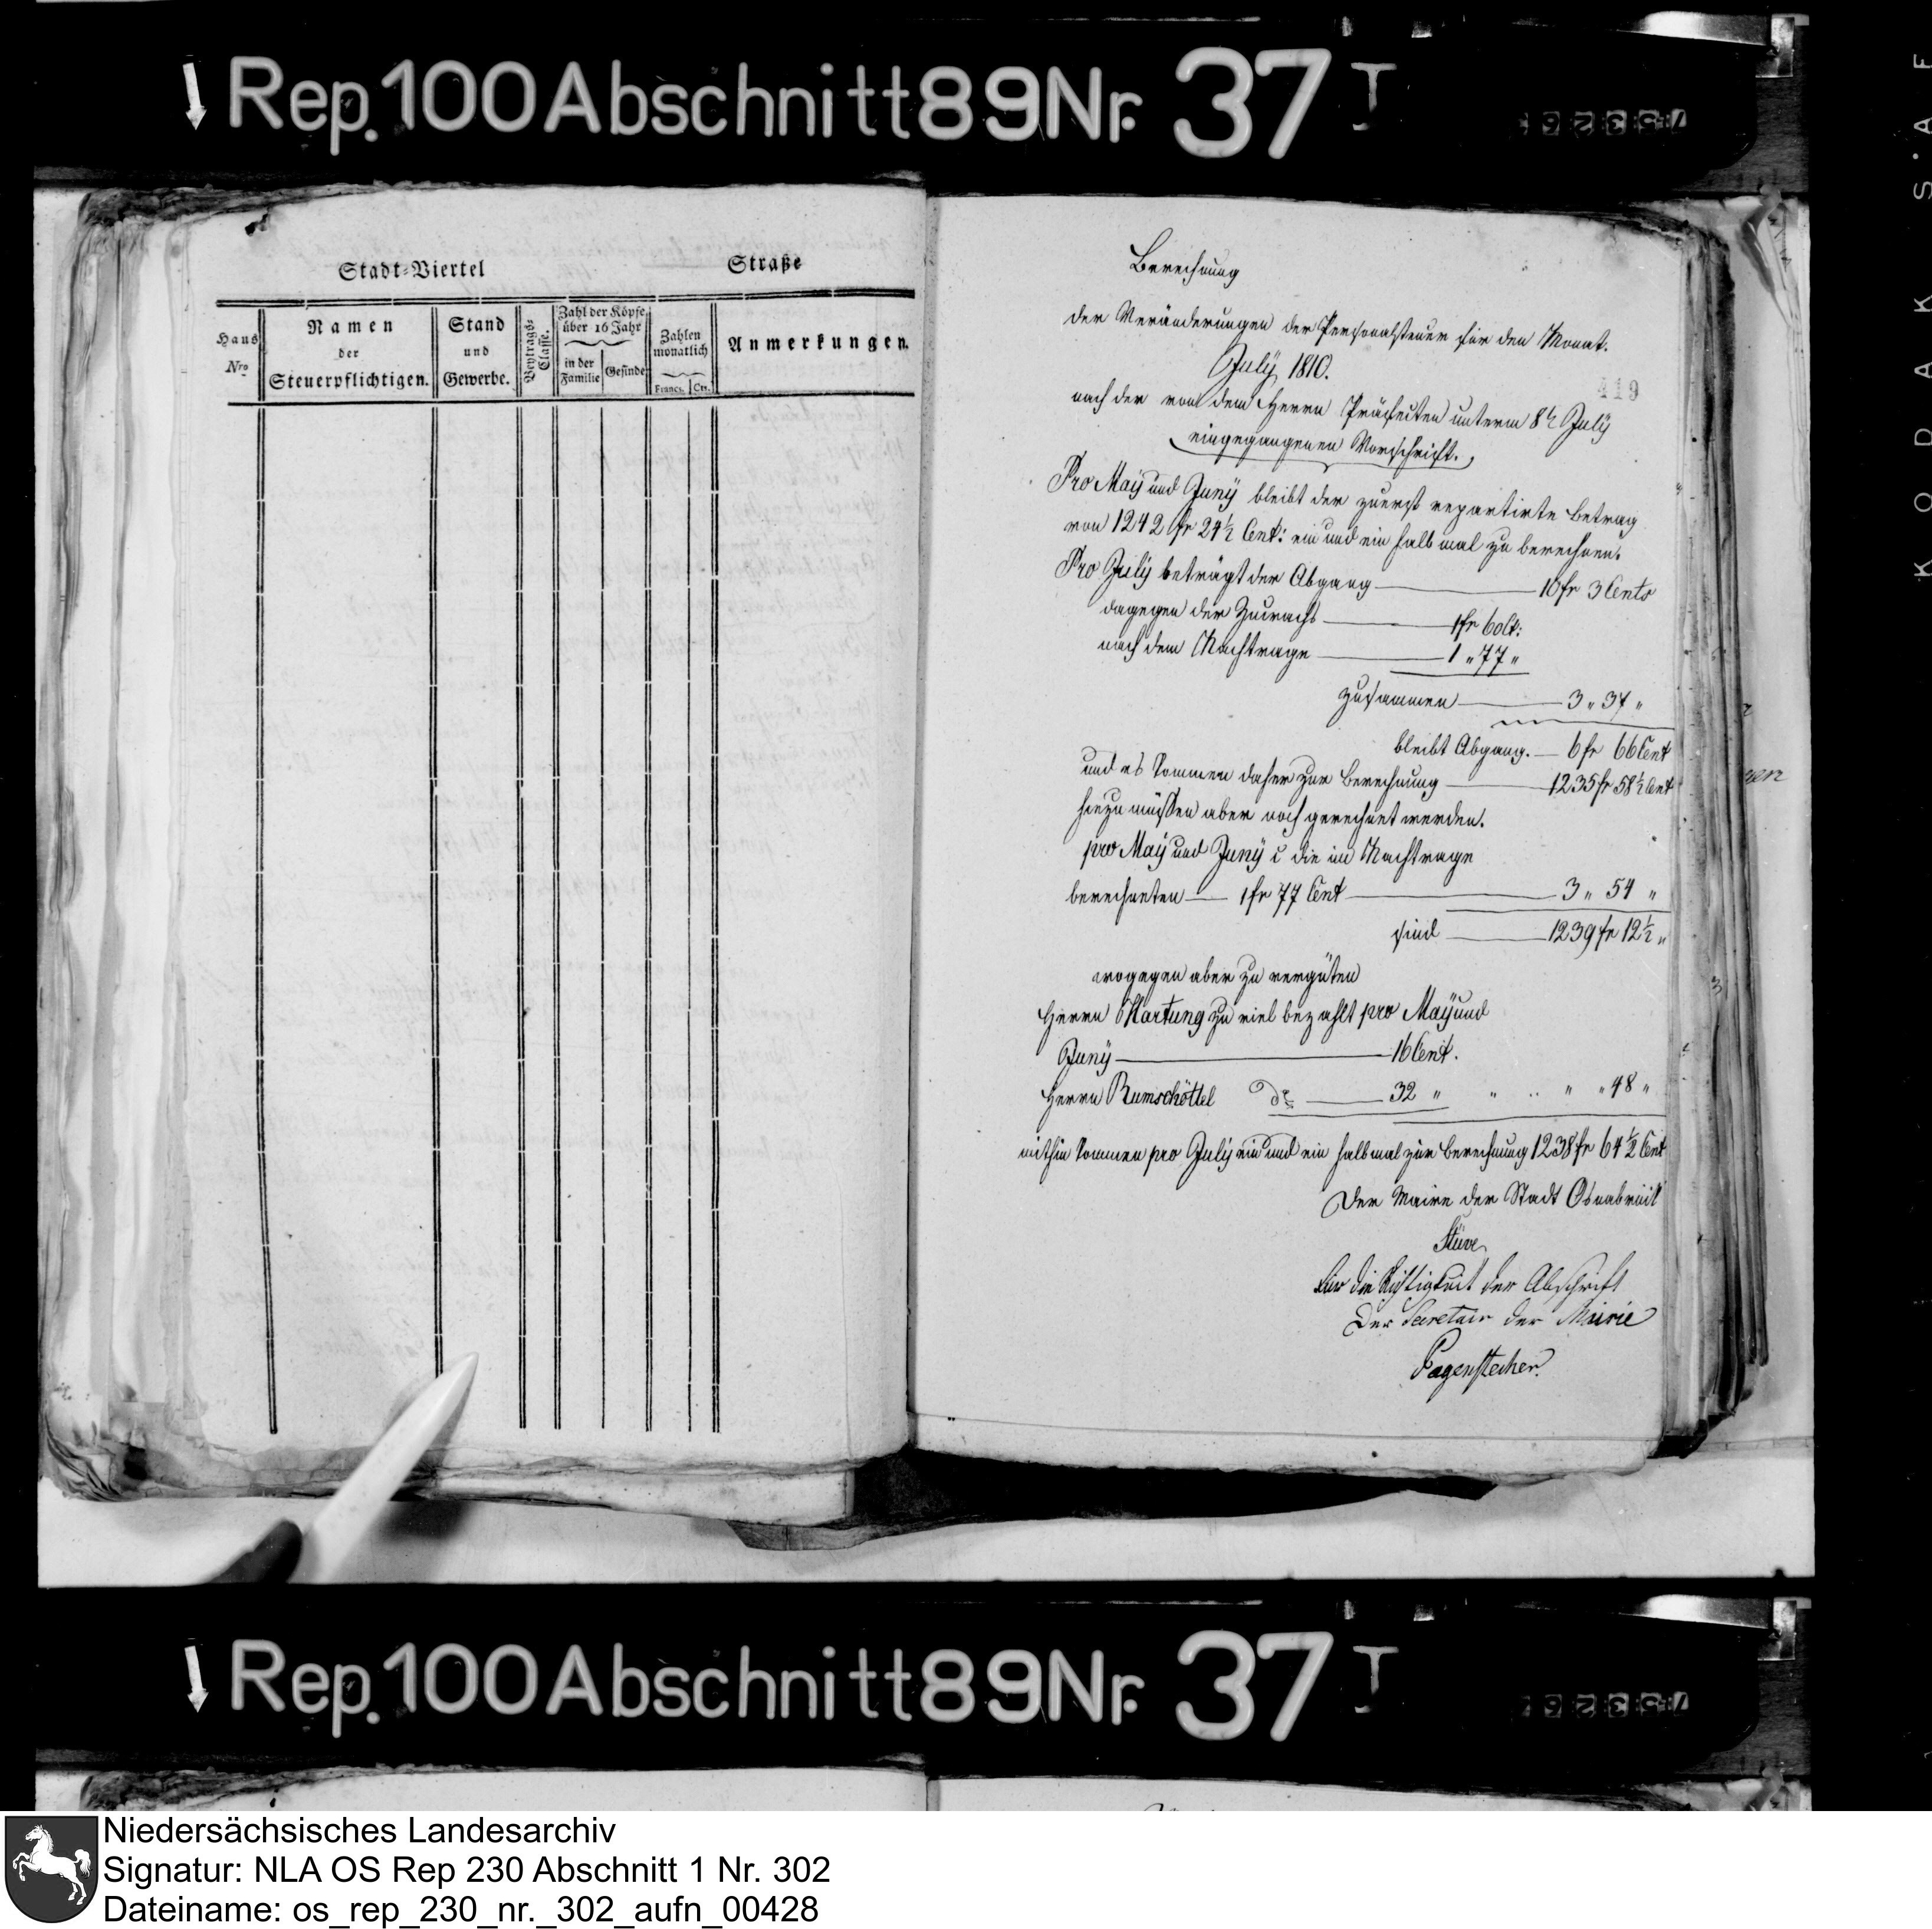 Rep. 100 Abschnitt 89 Nr. 37 I
KODAK S·AF
Stadt-Viertel Straße
Haus Nro
Namen der Steuerpflichtigen.
Stand und Gewerbe.
Beytrags-Classe.
Zahl der Köpfe über 16 Jahr
in der Familie
Gesinde
Zahlen monatlich
Francs. Cts.
Anmerkungen.
Berechnung
der Veränderungen der Personalsteuer für den Monat.
July 1810.
419
nach der von dem Herrn Präfecten unterm 8t July
eingegangenen Vorschrift.
Pro May und Juny bleibt der zuerst repartirte Betrag
von 1242 fr 24½ Cent: ein und ein halb mal zu berechnen.
Pro July beträgt der Abgang 10 fr 3 Cents
dagegen der Zuwachs 1 fr 60 Ct:
nach dem Nachtrage 1 „ 77 „
zusammen 3 „ 37 „
bleibt Abgang. 6 fr 66 Cent
und es kommen daher zur Berechnung 1235 fr 58½ Cent
hinzu müssen aber noch gerechnet werden.
pro May und Juny c die im Nachtrage
berechneten 1 fr 77 Cent 3 „ 54 „
sind 1239 fr 12½ „
wogegen aber zu vergüten
Herrn Hartung zu viel bezahlt pro May und
Juny 16 Cent.
Herrn Rumschöttel do 32 „ „ „ „ „ 48 „
mithin kommen pro July ein und ein halbmal zur Berechnung 1238 fr 64½ Cent
Der Maire der Stadt Osnabrück
Stüve
Für die Richtigkeit der Abschrift
Der Secretair der Mairie
Pagenstecher.
Rep. 100 Abschnitt 89 Nr. 37 I
Niedersächsisches Landesarchiv
Signatur: NLA OS Rep 230 Abschnitt 1 Nr. 302
Dateiname: os_rep_230_nr._302_aufn_00428